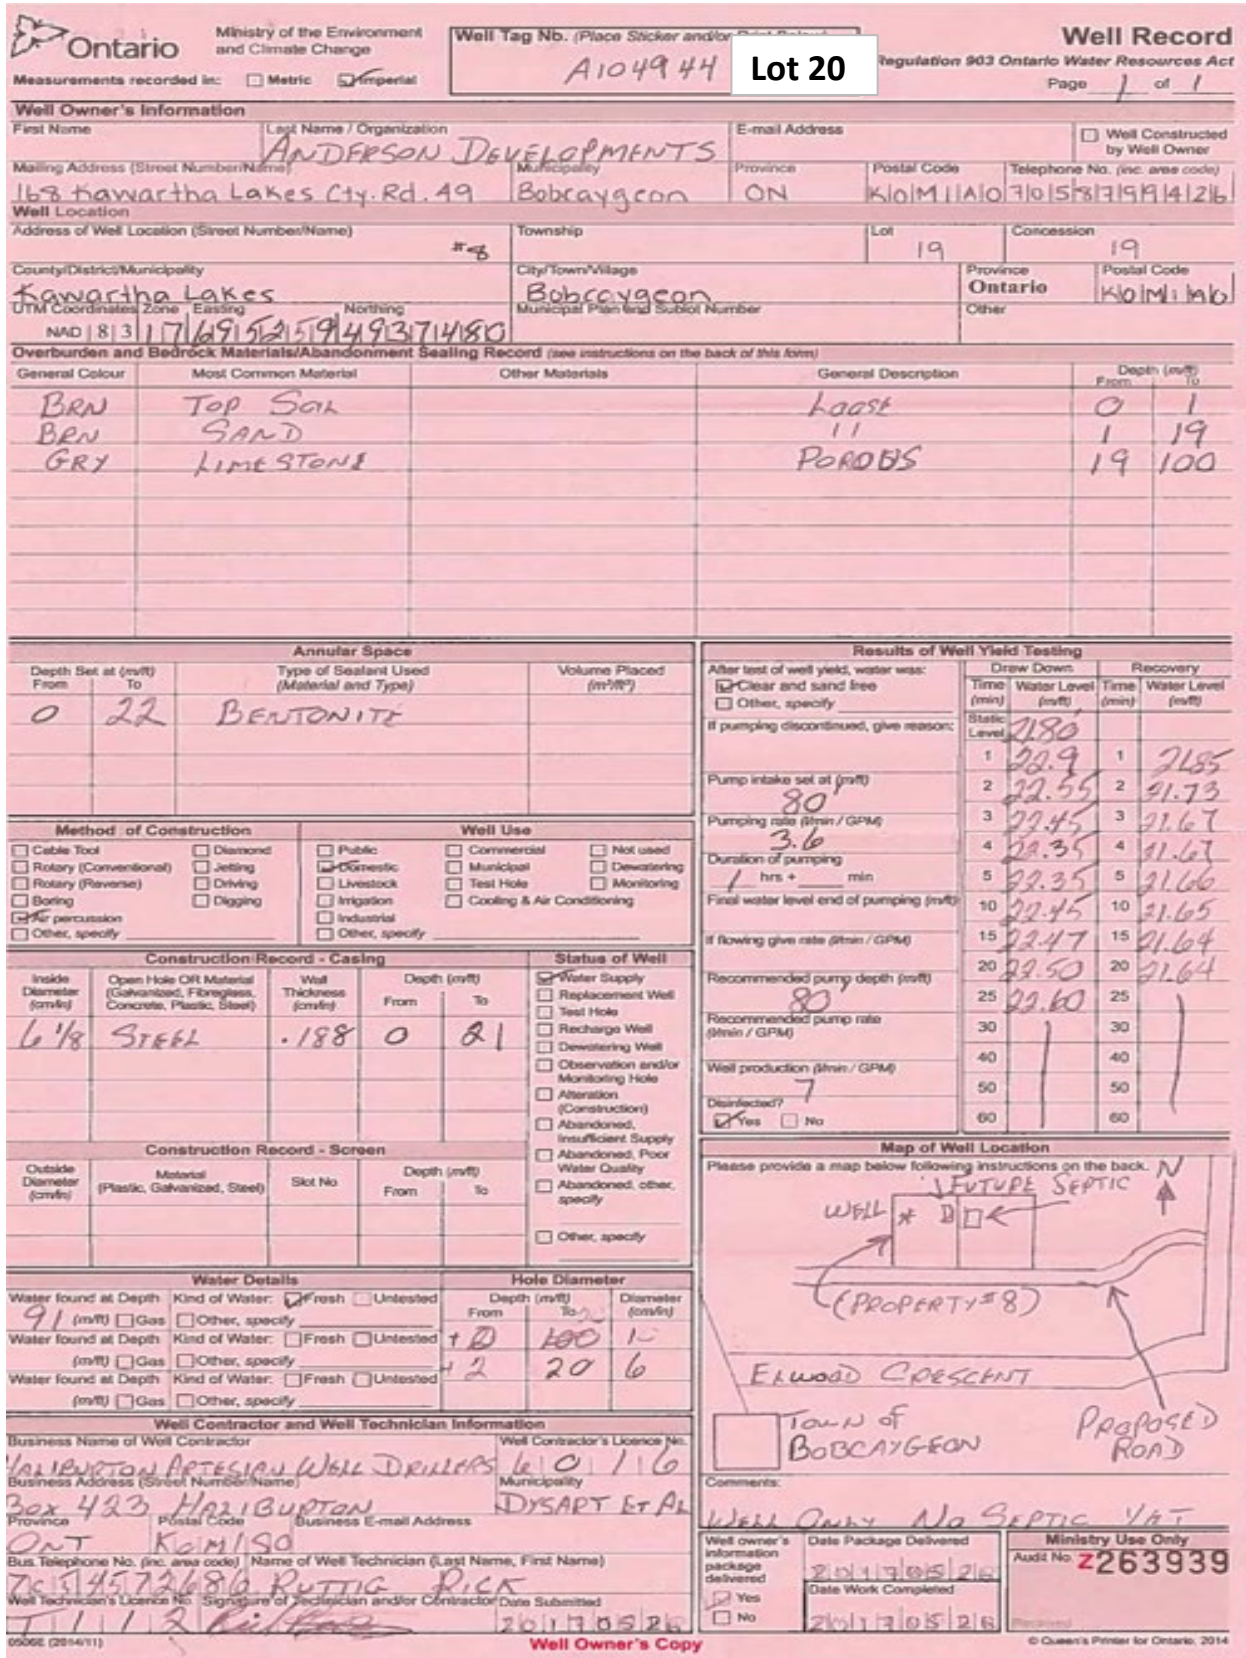 Ontario
Ministry of the Environment
and Climate Change
Measurements recorded in: Metric Imperial
Well Tag No. (Place Sticker and/or
A104944
Lot 20
Well Record
Regulation 903 Ontario Water Resources Act
Page 1 of 1
Well Owner's Information
First Name Last Name / Organization E-mail Address Well Constructed by Well Owner
ANDERSON DEVELOPMENTS
Mailing Address (Street Number/Name) Municipality Province Postal Code Telephone No. (inc. area code)
168 Kawartha Lakes Cty. Rd. 49 Bobcaygeon ON K0M1A0 7058799426
Well Location
Address of Well Location (Street Number/Name) Township Lot Concession
#8 19 19
County/District/Municipality City/Town/Village Province Postal Code
Kawartha Lakes Bobcaygeon Ontario K0M1A0
UTM Coordinates Zone Easting Northing Municipal Plan and Sublot Number Other
NAD 83 17 695259 4937480
Overburden and Bedrock Materials/Abandonment Sealing Record (see instructions on the back of this form)
General Colour Most Common Material Other Materials General Description Depth (m/ft) From To
BRN TOP SOIL Loose 0 1
BRN SAND 11 1 19
GRY LIMESTONE POROUS 19 100
Annular Space
Depth Set at (m/ft) From To Type of Sealant Used (Material and Type) Volume Placed (m³/ft³)
0 22 BENTONITE
Method of Construction
Cable Tool Diamond
Rotary (Conventional) Jetting
Rotary (Reverse) Driving
Boring Digging
Air percussion
Other, specify
Well Use
Public Commercial Not used
Domestic Municipal Dewatering
Livestock Test Hole Monitoring
Irrigation Cooling & Air Conditioning
Industrial
Other, specify
Construction Record - Casing
Inside Diameter (cm/in) Open Hole OR Material (Galvanized, Fibreglass, Concrete, Plastic, Steel) Wall Thickness (cm/in) Depth (m/ft) From To
6 1/8 STEEL .188 0 21
Status of Well
Water Supply
Replacement Well
Test Hole
Recharge Well
Dewatering Well
Observation and/or Monitoring Hole
Alteration (Construction)
Abandoned, Insufficient Supply
Abandoned, Poor Water Quality
Abandoned, other, specify
Other, specify
Construction Record - Screen
Outside Diameter (cm/in) Material (Plastic, Galvanized, Steel) Slot No Depth (m/ft) From To
Water Details
Water found at Depth Kind of Water: Fresh Untested
91 (m/ft) Gas Other, specify
Water found at Depth Kind of Water: Fresh Untested
(m/ft) Gas Other, specify
Water found at Depth Kind of Water: Fresh Untested
(m/ft) Gas Other, specify
Hole Diameter
Depth (m/ft) From To Diameter (cm/in)
20 6
Well Contractor and Well Technician Information
Business Name of Well Contractor Well Contractor's Licence No.
HALIBURTON ARTESIAN WELL DRILLERS 6016
Business Address (Street Number/Name) Municipality
Box 423 HALIBURTON DYSART ET AL
Province Postal Code Business E-mail Address
ONT K0M1S0
Bus. Telephone No. (inc. area code) Name of Well Technician (Last Name, First Name)
7054572686 RUTTIG RICK
Well Technician's Licence No. Signature of Technician and/or Contractor Date Submitted
T112 20170526
0506E (2014/11)
Well Owner's Copy
Results of Well Yield Testing
After test of well yield, water was:
Clear and sand free
Other, specify
If pumping discontinued, give reason:
Pump intake set at (m/ft)
80'
Pumping rate (l/min / GPM)
3.6
Duration of pumping
1 hrs + min
Final water level end of pumping (m/ft)
If flowing give rate (l/min / GPM)
Recommended pump depth (m/ft)
80
Recommended pump rate (l/min / GPM)
Well production (l/min / GPM)
7
Disinfected?
Yes No
Draw Down Recovery
Time (min) Water Level (m/ft) Time (min) Water Level (m/ft)
Static Level 21.80
1 22.9 1 21.85
2 22.55 2 21.73
3 22.45 3 21.67
4 22.35 4 21.67
5 22.35 5 21.66
10 22.45 10 21.65
15 22.47 15 21.64
20 22.50 20 21.64
25 22.60 25
30 30
40 40
50 50
60 60
Map of Well Location
Please provide a map below following instructions on the back.
N
FUTURE SEPTIC
WELL
(PROPERTY #8)
ELWOOD CRESCENT
TOWN OF BOBCAYGEON
PROPOSED ROAD
Comments:
WELL ONLY NO SEPTIC YET
Well owner's information package delivered
Yes
No
Date Package Delivered
20170526
Date Work Completed
20170526
Ministry Use Only
Audit No. Z263939
Received
© Queen's Printer for Ontario, 2014